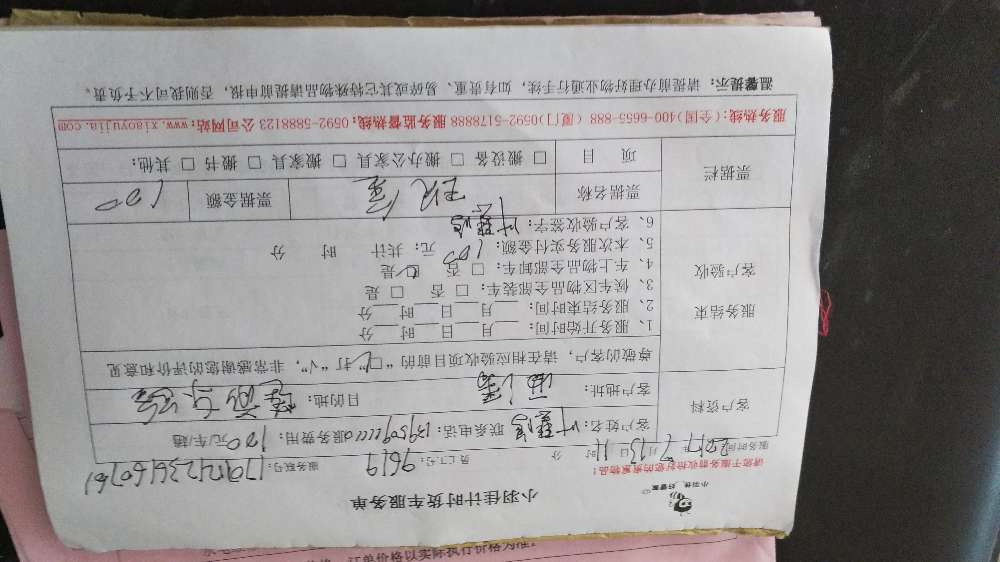 小羽佳，好管家
小羽佳计时货车服务单
请您于服务前收拾好您的贵重物品！
服务时间: 2017年7月13日11时 分 员工工号: 9619 服务账号:
客户资料 客户姓名: 联系电话: 服务费用: 100元/车/趟
客户地址: 目的地:
尊敬的客户，请在相应验收项目前的“□”打“√”，非常感谢您的评价和意见
服务结束
客户验收
1、服务开始时间: 月 日 时 分
2、服务结束时间: 月 日 时 分
3、候车区物品全部装车: □ 否 □ 是
4、车上物品全部卸车: □ 否 □ 是
5、本次服务实付金额: 100 元: 共计 时 分
6、客户验收签字:
票据栏 票据名称 现金 票据金额 100
项 目 □ 搬设备 □ 搬办公家具 □ 搬家具 □ 搬书 □ 其他:
服务热线: (全国)400-6655-888 (厦门)0592-5178888 服务监督热线: 0592-5888123 公司网站: www.xiaoyujia.com
温馨提示: 请提前办理好物业通行手续，如有贵重、易碎或其它特殊物品请提前申报，否则我司不予负责。
订单价格以实际执行价格为准.